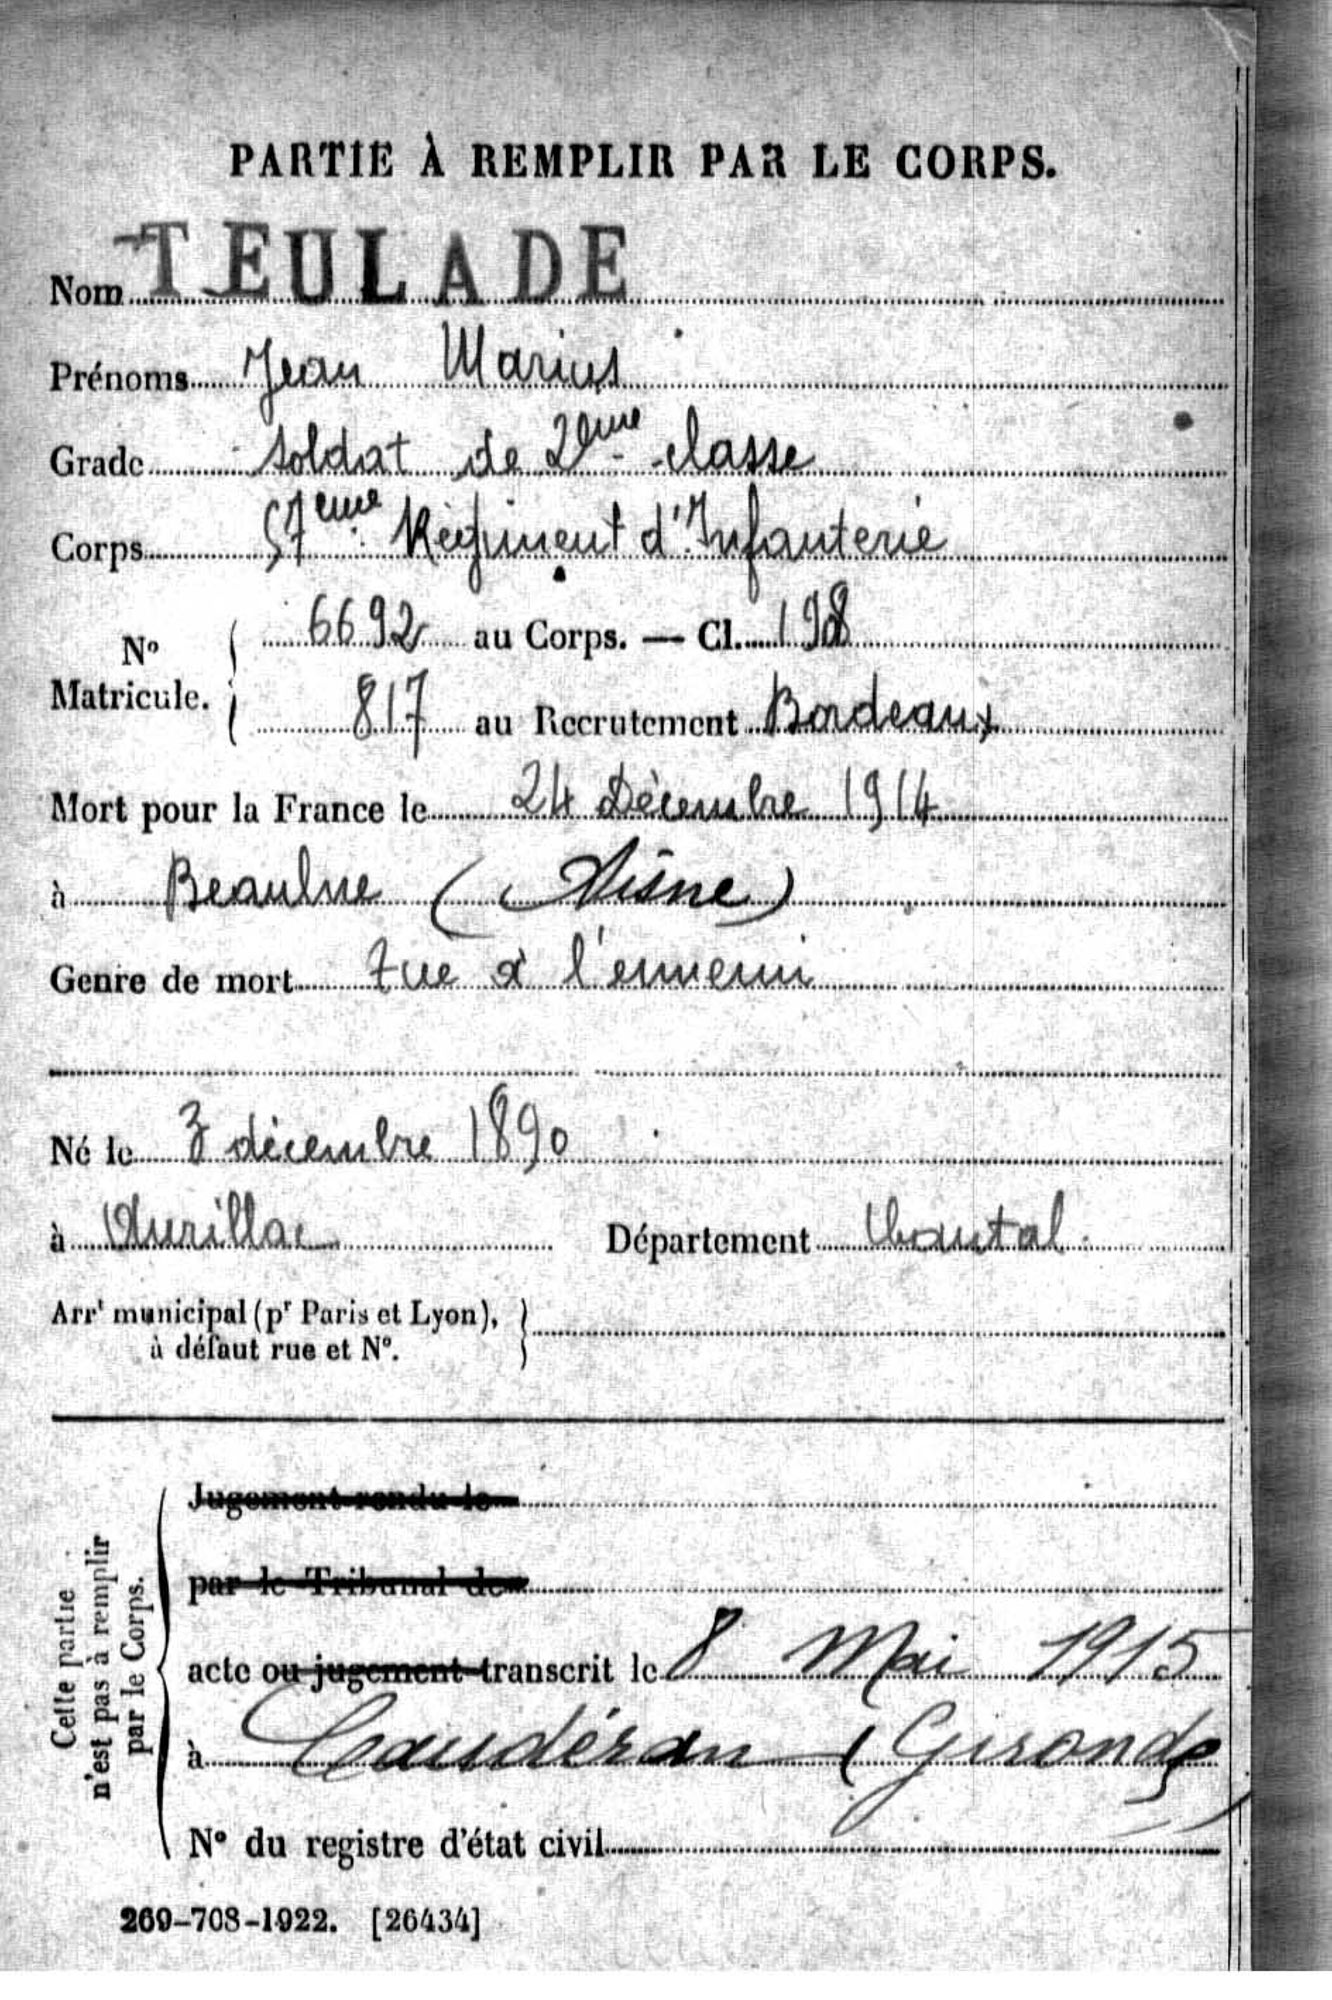 PARTIE À REMPLIR PAR LE CORPS.
Nom TEULADE
Prénoms Jean Marius
Grade Soldat de 2ème classe
Corps 57ème Régiment d'Infanterie
No Matricule. 6692 au Corps. — Cl.
817 au Recrutement Bordeaux
Mort pour la France le 24 Décembre 1914
à Beaulne (Aisne)
Genre de mort tué à l'ennemi
Né le 3 décembre 1890
à Aurillac Département Cantal
Arrt municipal (pr Paris et Lyon),
à défaut rue et No.
Cette partie
n'est pas à remplir
par le Corps.
Jugement rendu le
par le Tribunal de
acte ou jugement transcrit le 8 Mai 1915
à Caudéran (Gironde)
No du registre d'état civil
269-708-1922. [26434]